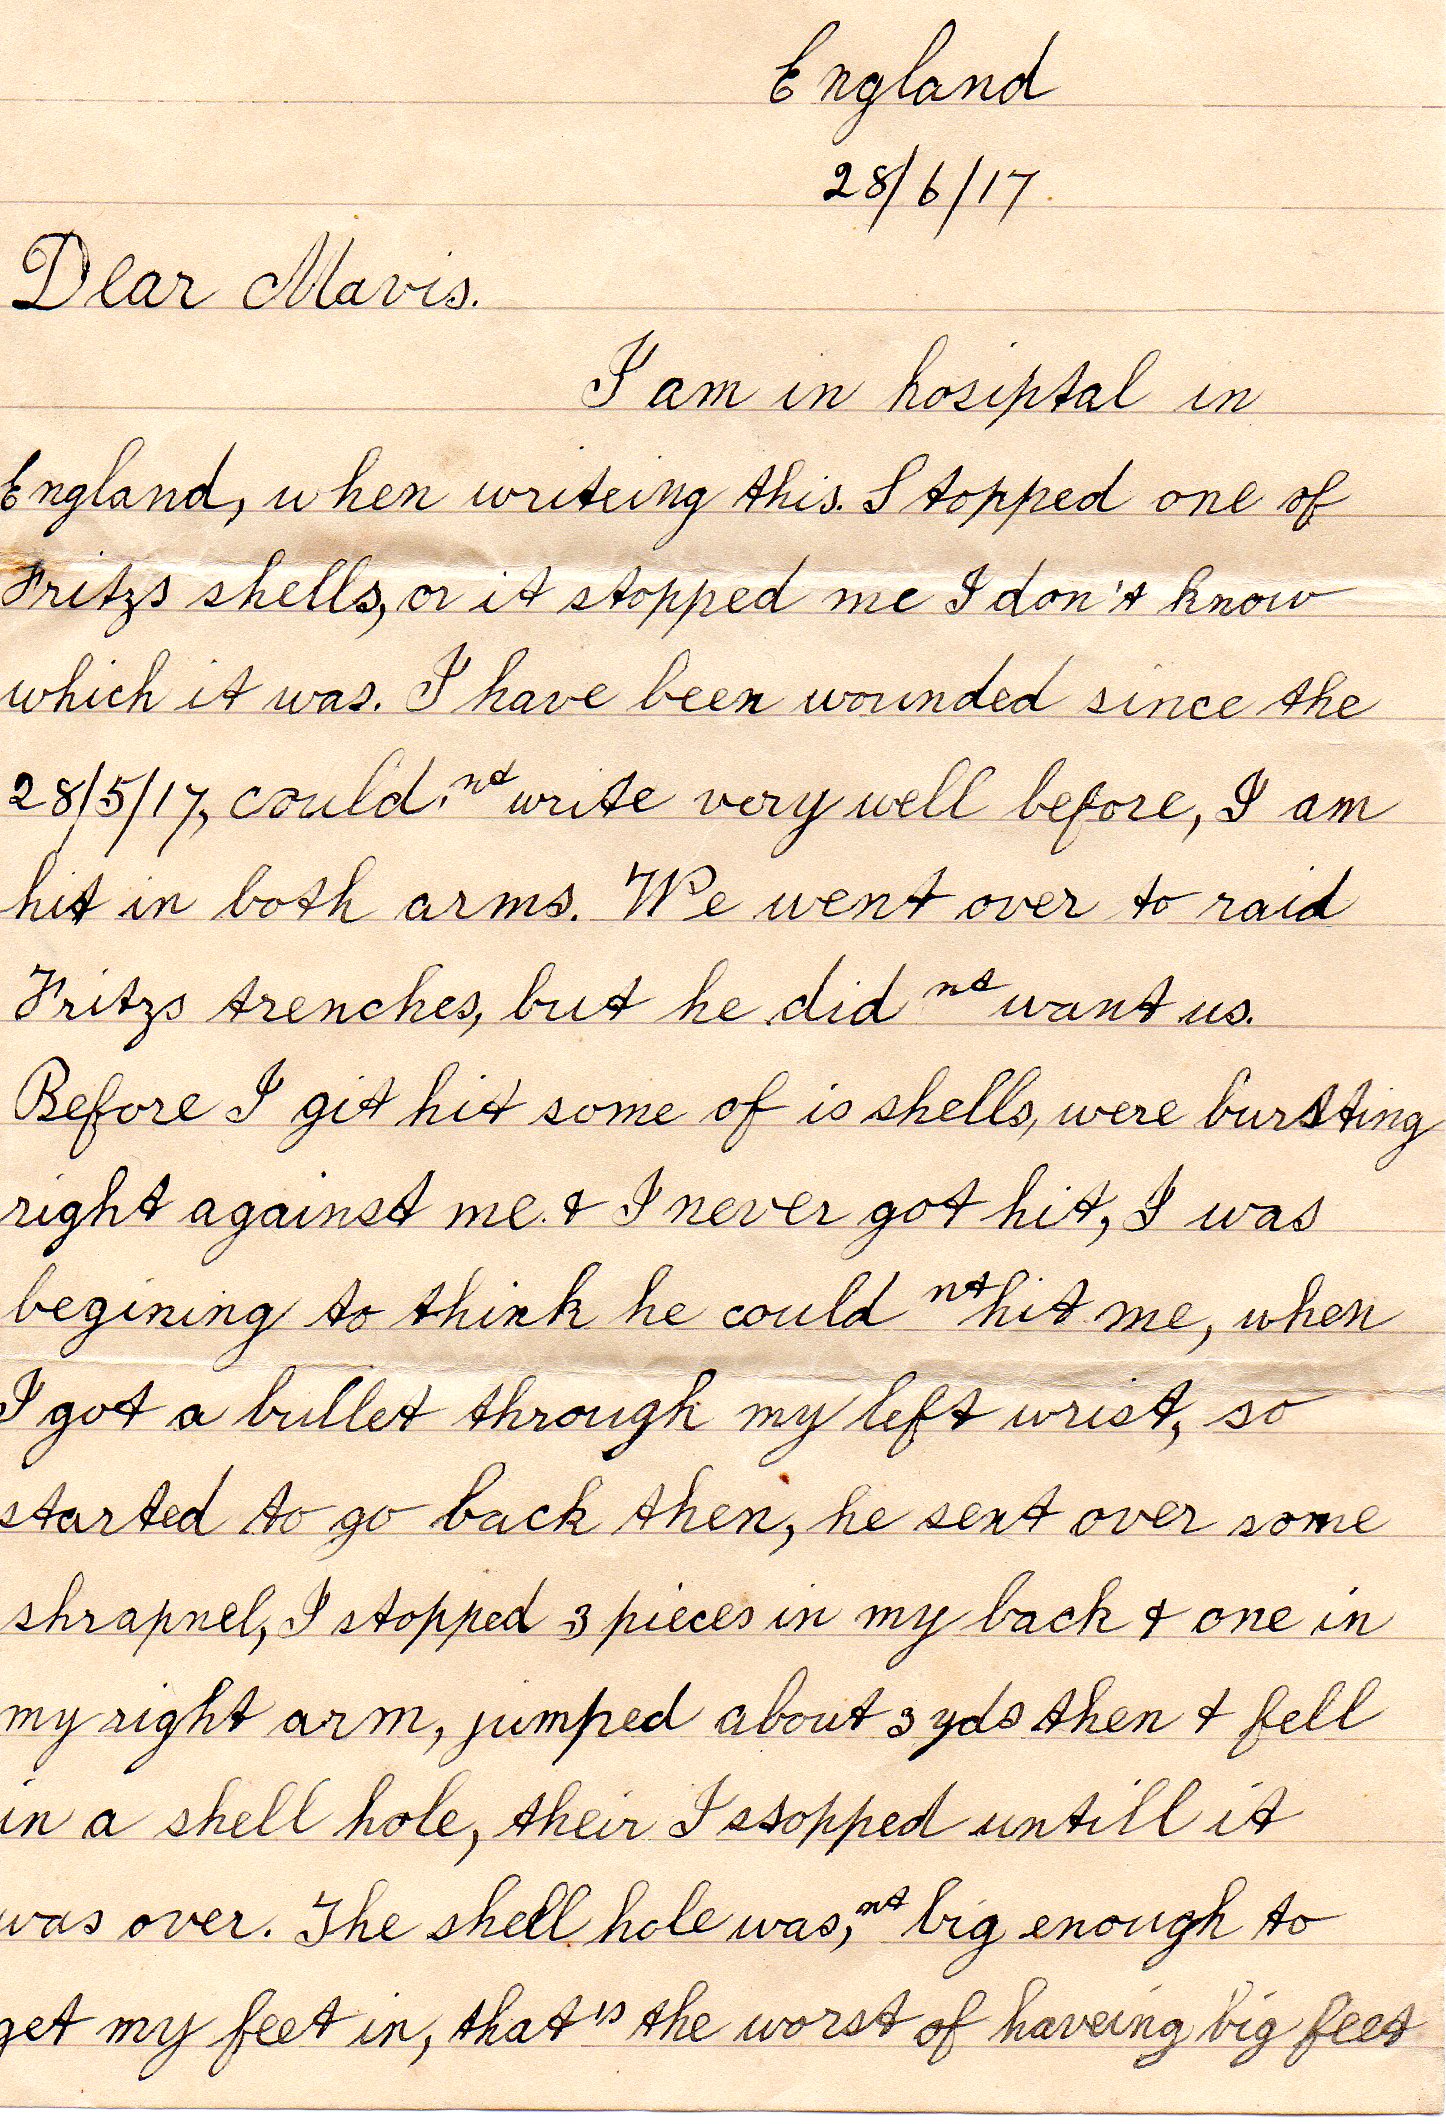 England
28/6/17.
Dear Mavis.
I am in hosiptal in
England, when writeing this. Stopped one of
Fritzs shells, or it stopped me I don't know
which it was. I have been wounded since the
28/5/17, could.nt write very well before, I am
hit in both arms. We went over to raid
Fritzs trenches, but he did nt want us.
Before I git hit some of is shells, were bursting
right against me. & I never got hit, I was
begining to think he could nt hit me, when
I got a bullet through my left wrist, so
started to go back then, he sent over some
shrapnel, I stopped 3 pieces in my back & one in
my right arm, jumped about 3 yds then & fell
in a shell hole, their I stopped untill it
was over. The shell hole was,nt big enough to
get my feet in, that is the worst of haveing big feet